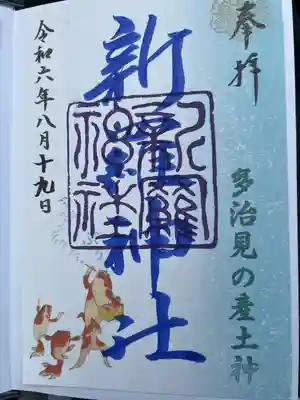 奉拝
多治見の産土神
新羅神社
令和六年八月十九日